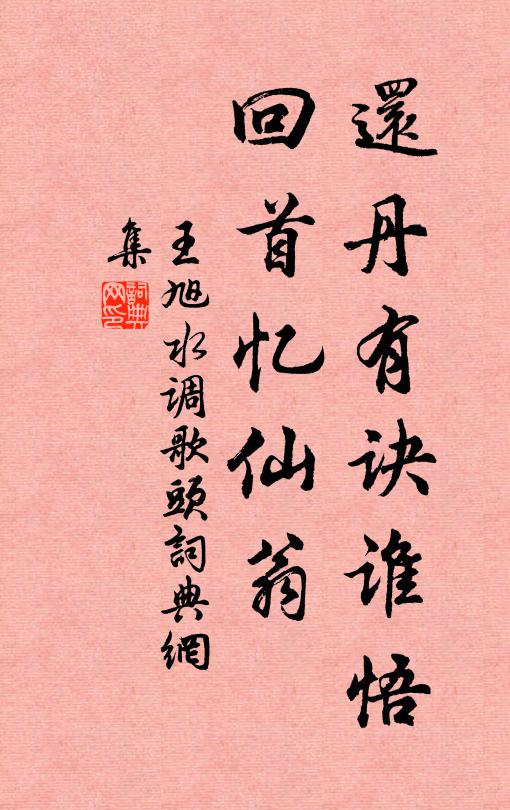 還丹有诀谁悟
回首忆仙翁
王旭水调歌頭詞典網
集
詞典网印